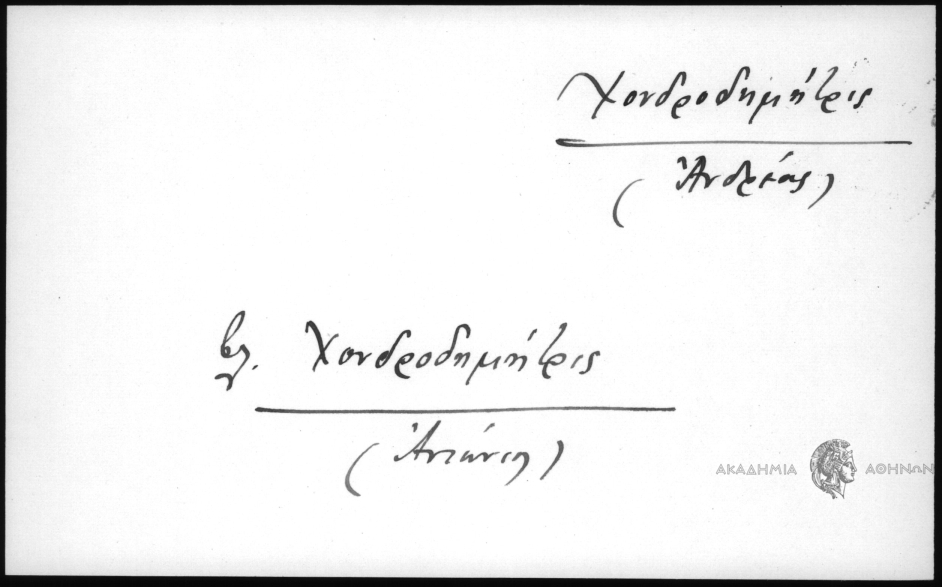 Χονδροδημήτρις
(Ἀνδρέας)
βλ. Χονδροδημήτρις
(Ἀντώνιος)
ΑΚΑΔΗΜΙΑ ΑΘΗΝΩΝ